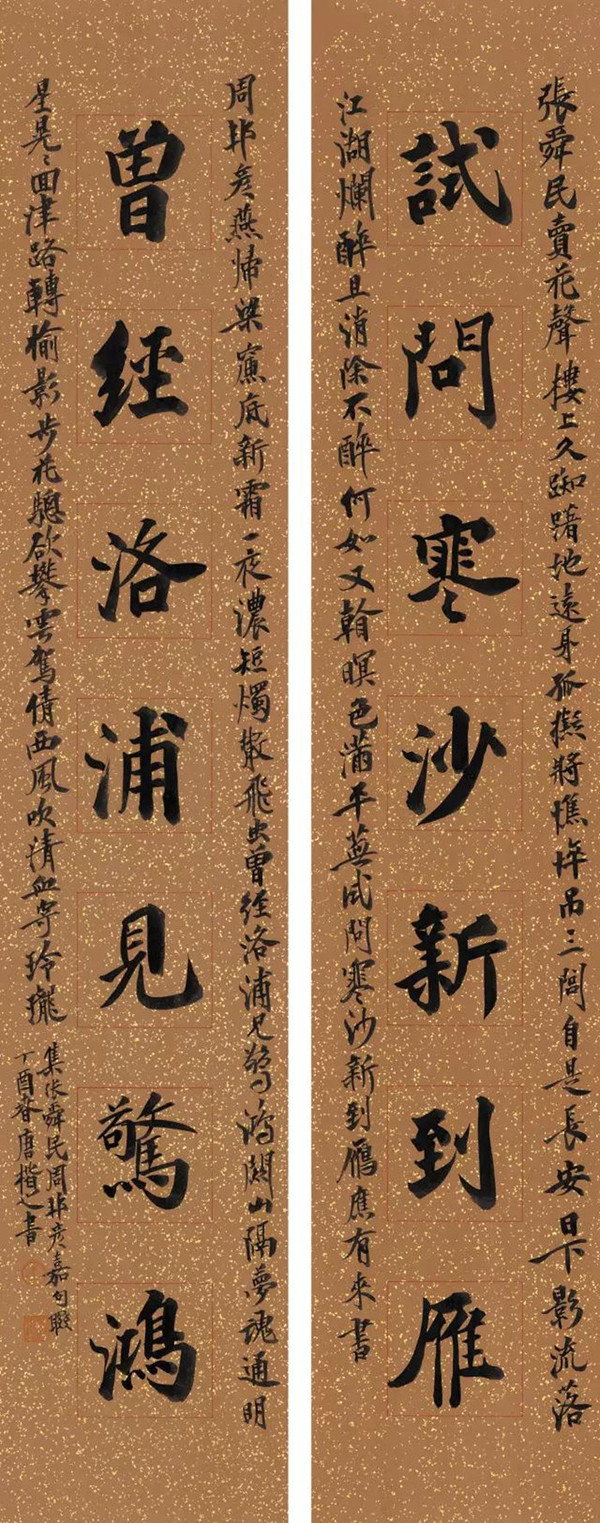 張舜民賣花聲樓上久踟躇地遠身孤擬將憔悴吊三閭自是長安日下影流落
試問寒沙新到雁
江湖爛醉且消除不醉何如又看暝色滿平蕪試問寒沙新到鴈應有來書
周邦彥燕歸梁簾底新霜一夜濃短燭散飛虫曾經洛浦見驚鴻關山隔夢魂通明
曾經洛浦見驚鴻
星晃〻回津路轉榆影步花驄欲攀雲駕倩西風吹清血寄玲瓏
集張舜民周邦彥嘉句聯
丁酉春唐楷之書